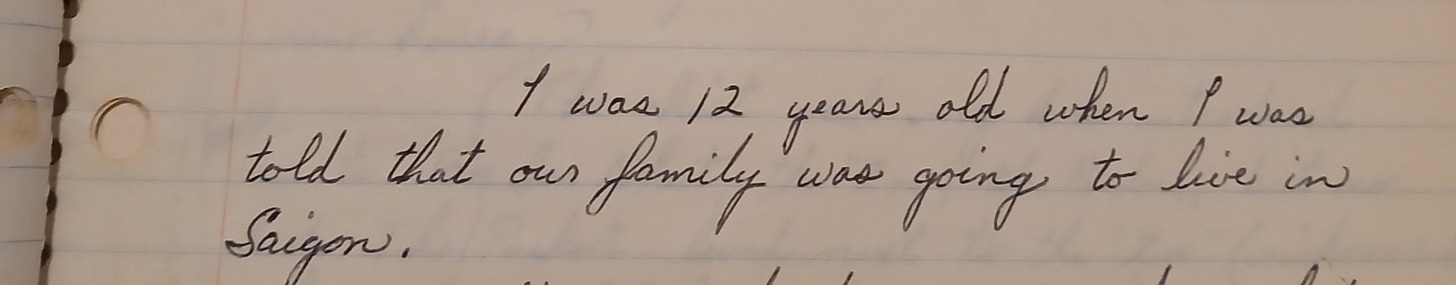 I was 12 years old when I was
told that our family was going to live in
Saigon.